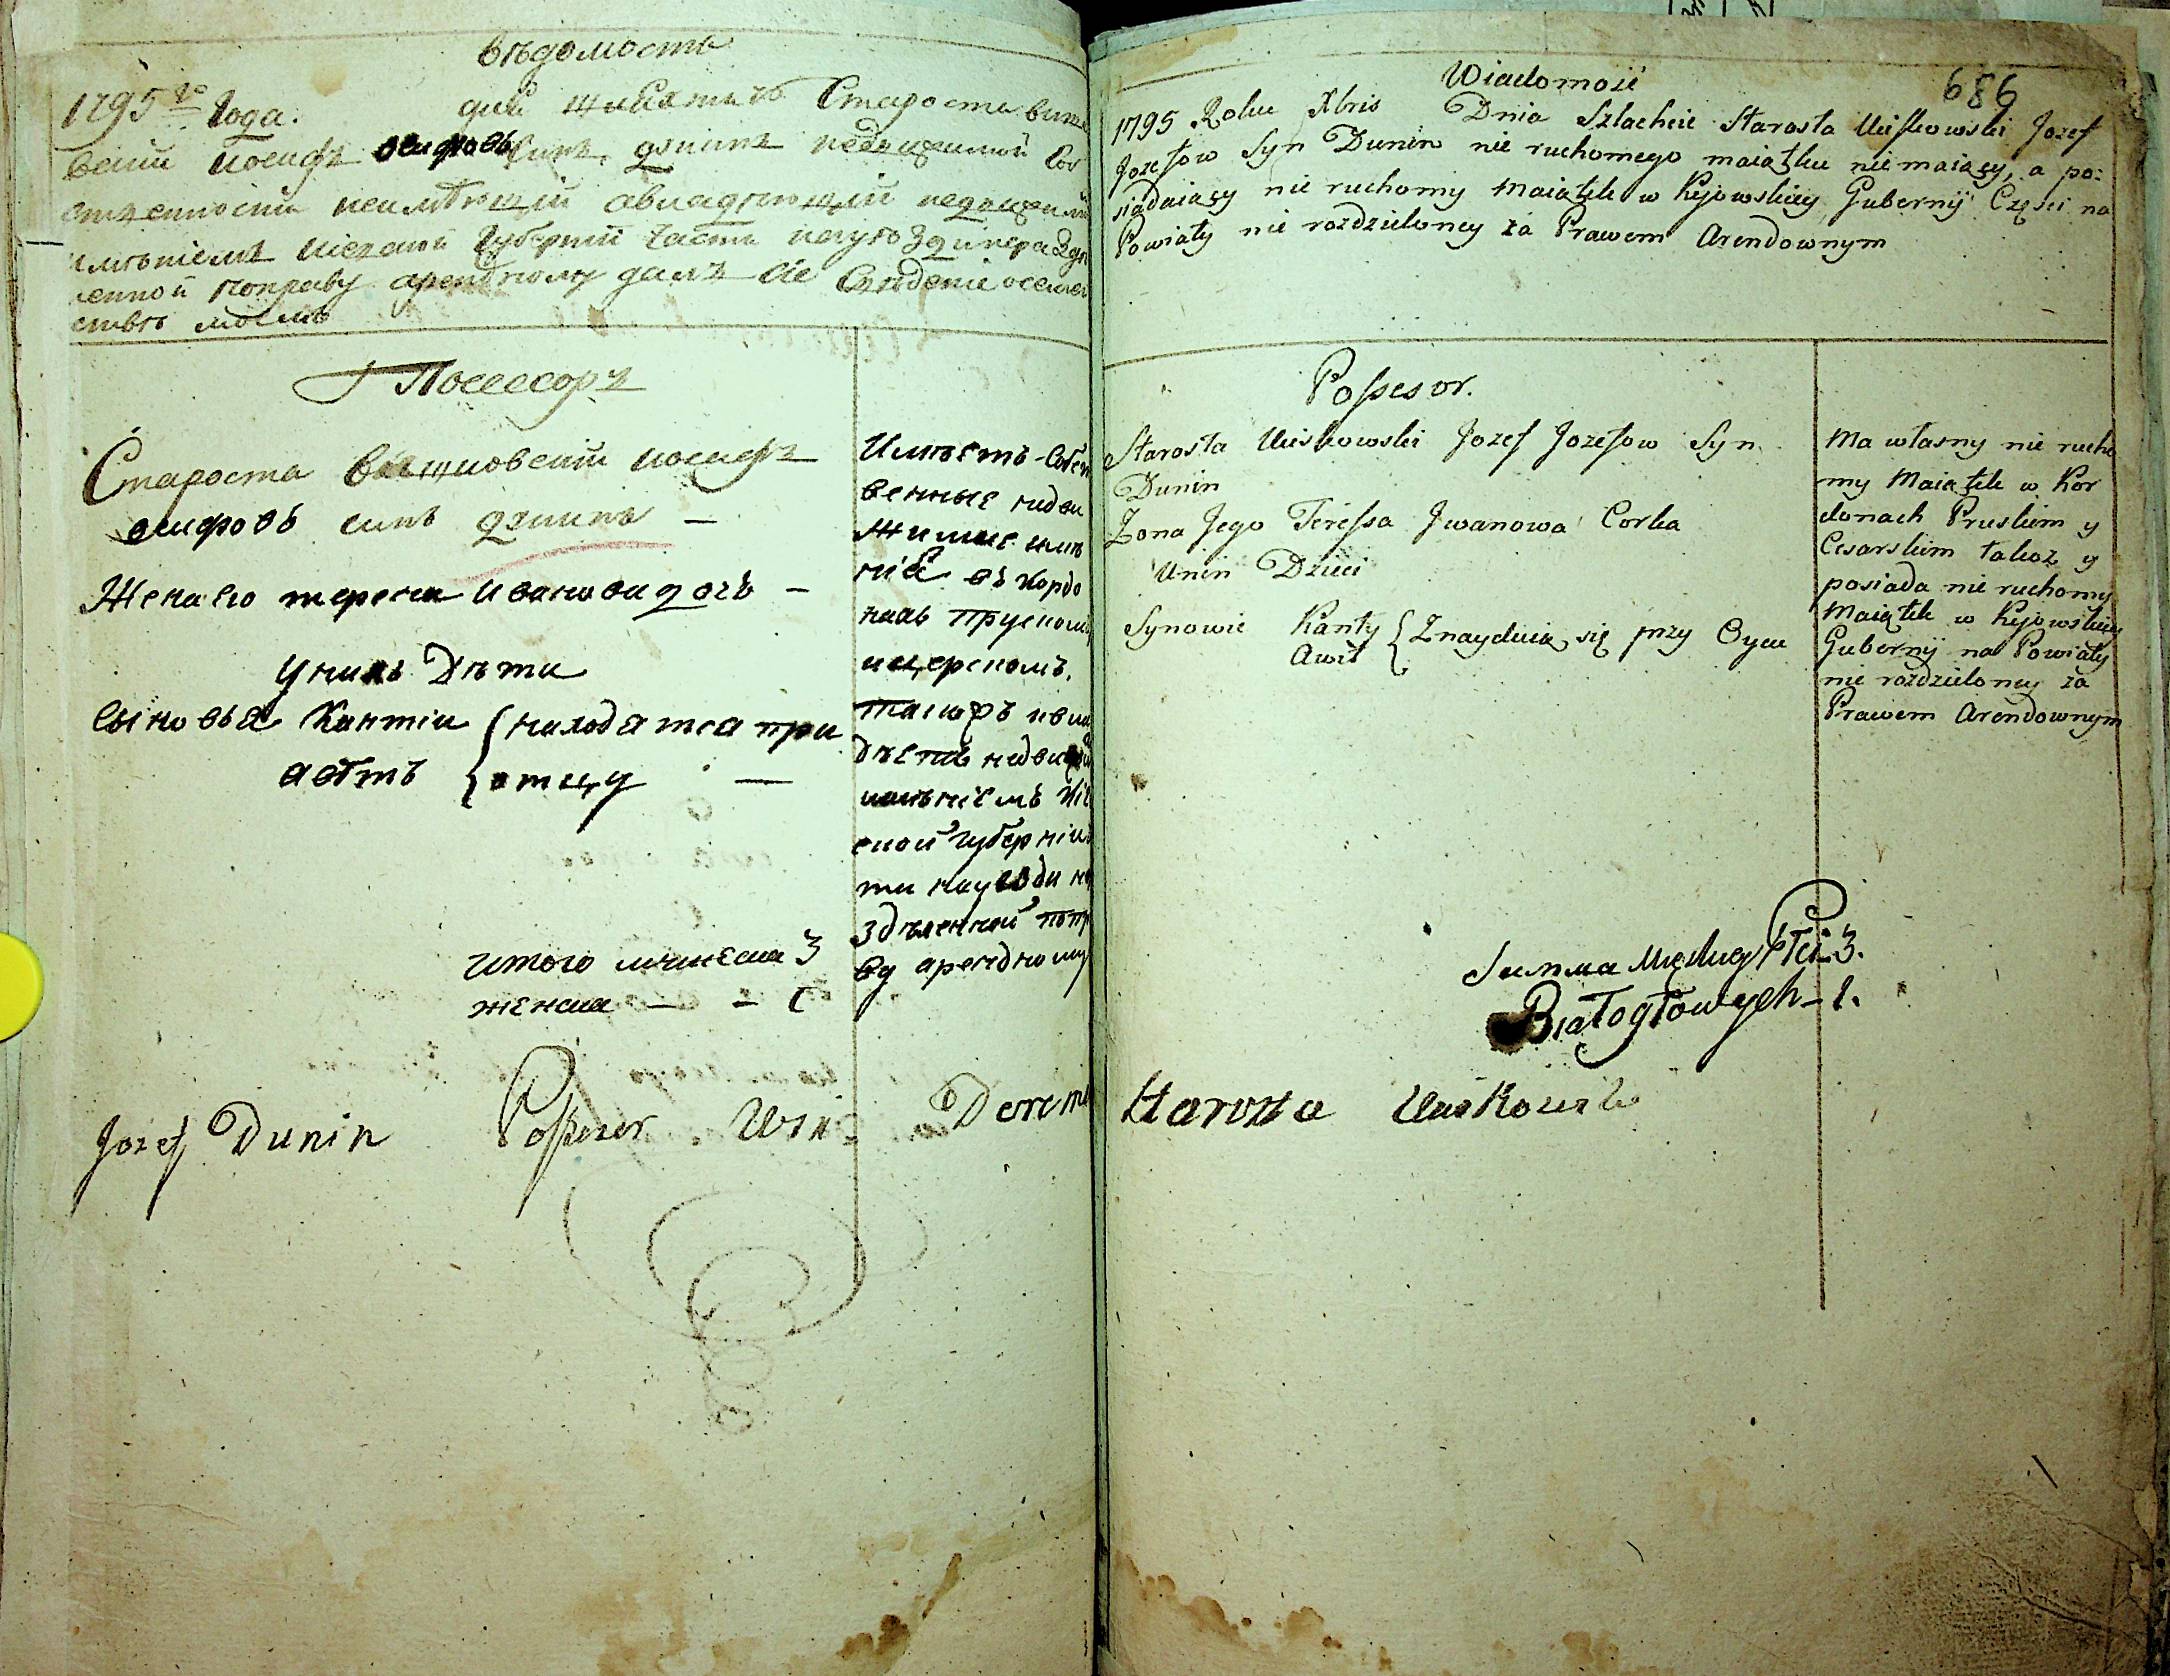 вѣдомость
1795го года. дня шляхтичъ Староста вищ
вскій иосифъ осифовъ синъ дунинъ недвижимой соб
ственности неимѣющій авладѣющій недвижим
имѣніемъ кіевской губерніи части науездинераздѣ
ленной поправу арендному далъ сіе свѣденіе осемей
ствѣ моемъ
Посессоръ
Староста вищновскій иосифъ
осифовъ синъ дунинъ —
Жена его тереса иванова дочь —
унихъ Дѣти
сыновья Кантій { находятся при
авѣтъ { отцу —
итого мужеска 3
женска — — 1
Имѣетъ собст
венные недви
жимые имѣ
нія въ кордо
нахъ прускомъ
ицерскомъ.
такожъ ивла
дѣетъ недвижи
имѣніемъ Кіе
ской губерніи
ти науезди не
здѣленной попр
ву арендному
Jozef Dunin Possesor Wsi Derem
Wiadomość
686
1795 Roku Xbris Dnia Szlachcic Starosta Uiskowski Jozef
Jozefow Syn Dunin nie ruchomego maiątku nie maiący, a po:
siadaiący nie ruchomy Maiątek w Kijowskiey Gubernij Części na
Powiaty nie rozdzieloney za Prawem Arendownym
Possesor.
Starosta Uiskowski Jozef Jozefow Syn
Dunin
Zona Jego Teressa Jwanowa Corka
Unen Dzieci
Synowie Kanty { Znayduią się przy Oycu
Awit
Ma własny nie rucho
my Maiątek w Kor
donach Pruskim y
Cesarskim takoż y
posiada nie ruchomy
Maiątek w Kijowskiey
Gubernij na Powiaty
nie rozdzieloney za
Prawem Arendownym
Summa Męskiey Płci 3.
Białogłowych – 1.
Starosta Uiskowski